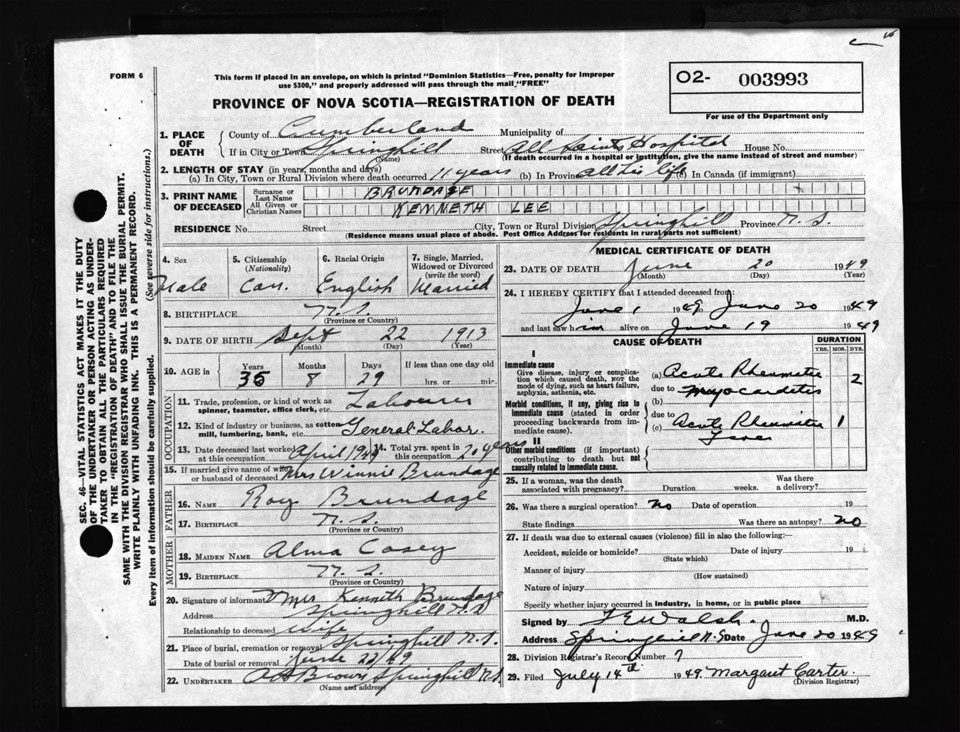 FORM 6
This form if placed in an envelope, on which is printed "Dominion Statistics—Free, penalty for improper
use $300," and properly addressed will pass through the mail "FREE"
O2- 003993
For use of the Department only
PROVINCE OF NOVA SCOTIA—REGISTRATION OF DEATH
SEC. 46—VITAL STATISTICS ACT MAKES IT THE DUTY
OF THE UNDERTAKER OR PERSON ACTING AS UNDER-
TAKER TO OBTAIN ALL THE PARTICULARS REQUIRED
IN THE "REGISTRATION OF DEATH" AND TO FILE THE
SAME WITH THE DIVISION REGISTRAR WHO SHALL ISSUE THE BURIAL PERMIT.
WRITE PLAINLY WITH UNFADING INK. THIS IS A PERMANENT RECORD.
Every item of information should be carefully supplied. (See reverse side for instructions.)
1. PLACE OF DEATH
County of Cumberland Municipality of
If in City or Town Springhill (Name) Street All Saints Hospital House No.
(If death occurred in a hospital or institution, give the name instead of street and number)
2. LENGTH OF STAY (in years, months and days)
(a) In City, Town or Rural Division where death occurred 11 years (b) In Province all his life (c) In Canada (if immigrant)
3. PRINT NAME OF DECEASED
Surname or Last Name BRUNDAGE
All Given or Christian Names KENNETH LEE
RESIDENCE No. Street City, Town or Rural Division Springhill Province N.S.
(Residence means usual place of abode. Post Office Address for residents in rural parts not sufficient)
4. Sex Male
5. Citizenship (Nationality) Can.
6. Racial Origin English
7. Single, Married, Widowed or Divorced (write the word) Married
8. BIRTHPLACE N.S.
(Province or Country)
9. DATE OF BIRTH Sept 22 1913
(Month) (Day) (Year)
10. AGE in Years 35 Months 8 Days 29 If less than one day old hrs. or min.
OCCUPATION
11. Trade, profession, or kind of work as spinner, teamster, office clerk, etc. Labourer
12. Kind of industry or business, as cotton mill, lumbering, bank, etc. General Labor.
13. Date deceased last worked at this occupation April 1949
14. Total yrs. spent in this occupation 20 years
15. If married give name of wife or husband of deceased Mrs Winnie Brundage
FATHER
16. NAME Roy Brundage
17. BIRTHPLACE N.S.
(Province or Country)
MOTHER
18. MAIDEN NAME Alma Casey
19. BIRTHPLACE N.S.
(Province or Country)
20. Signature of informant Mrs Kenneth Brundage
Address Springhill N.S
Relationship to deceased Wife
21. Place of burial, cremation or removal Springhill N.S.
Date of burial or removal June 22/49
22. UNDERTAKER Brown Springhill N.S
(Name and address)
MEDICAL CERTIFICATE OF DEATH
23. DATE OF DEATH June 20 1949
(Month) (Day) (Year)
24. I HEREBY CERTIFY that I attended deceased from:
June 1 1949, June 20 1949
and last saw him alive on June 19 1949
CAUSE OF DEATH
DURATION
YRS. MOS. DYS.
I
Immediate cause
Give disease, injury or complication which caused death, NOT the mode of dying, such as heart failure, asphyxia, asthenia, etc.
(a) Acute Rheumatic 2
due to Myocarditis
(b)
Morbid conditions, if any, giving rise to immediate cause (stated in order proceeding backwards from immediate cause).
due to
(c) Acute Rheumatic Fever 1
II
Other morbid conditions (if important) contributing to death but not causally related to immediate cause.
25. If a woman, was the death associated with pregnancy? Duration weeks. Was there a delivery?
26. Was there a surgical operation? No Date of operation 19
State findings Was there an autopsy? No
27. If death was due to external causes (violence) fill in also the following:—
Accident, suicide or homicide? Date of injury 19
(State which)
Manner of injury
(How sustained)
Nature of injury
Specify whether injury occurred in industry, in home, or in public place
Signed by Walsh. M.D.
Address Springhill N.S Date June 20 1949
28. Division Registrar's Record Number 7
29. Filed July 14th 1949. Margaret Carter.
(Division Registrar)